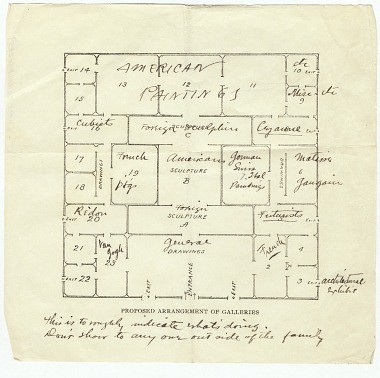 AMERICAN
PAINTINGS "
EXIT 14
13
12
10 EXIT
15
Misc
9
Cubist
16
Foreign Sculpture
C
Cezanne
17
18
DRAWINGS
French
19
American
SCULPTURE
B
German
Paintings
Matisse
6
Gauguin
Redon
20
Foreign
SCULPTURE
A
Futurists
21
Van
Gogh
23
General
DRAWINGS
French
2
4
EXIT 22
EXIT
ENTRANCE
EXIT
3 EXIT
architectural
Exhibit
PROPOSED ARRANGEMENT OF GALLERIES
This is to roughly indicate what's doing.
Don't show to any one out side of the family